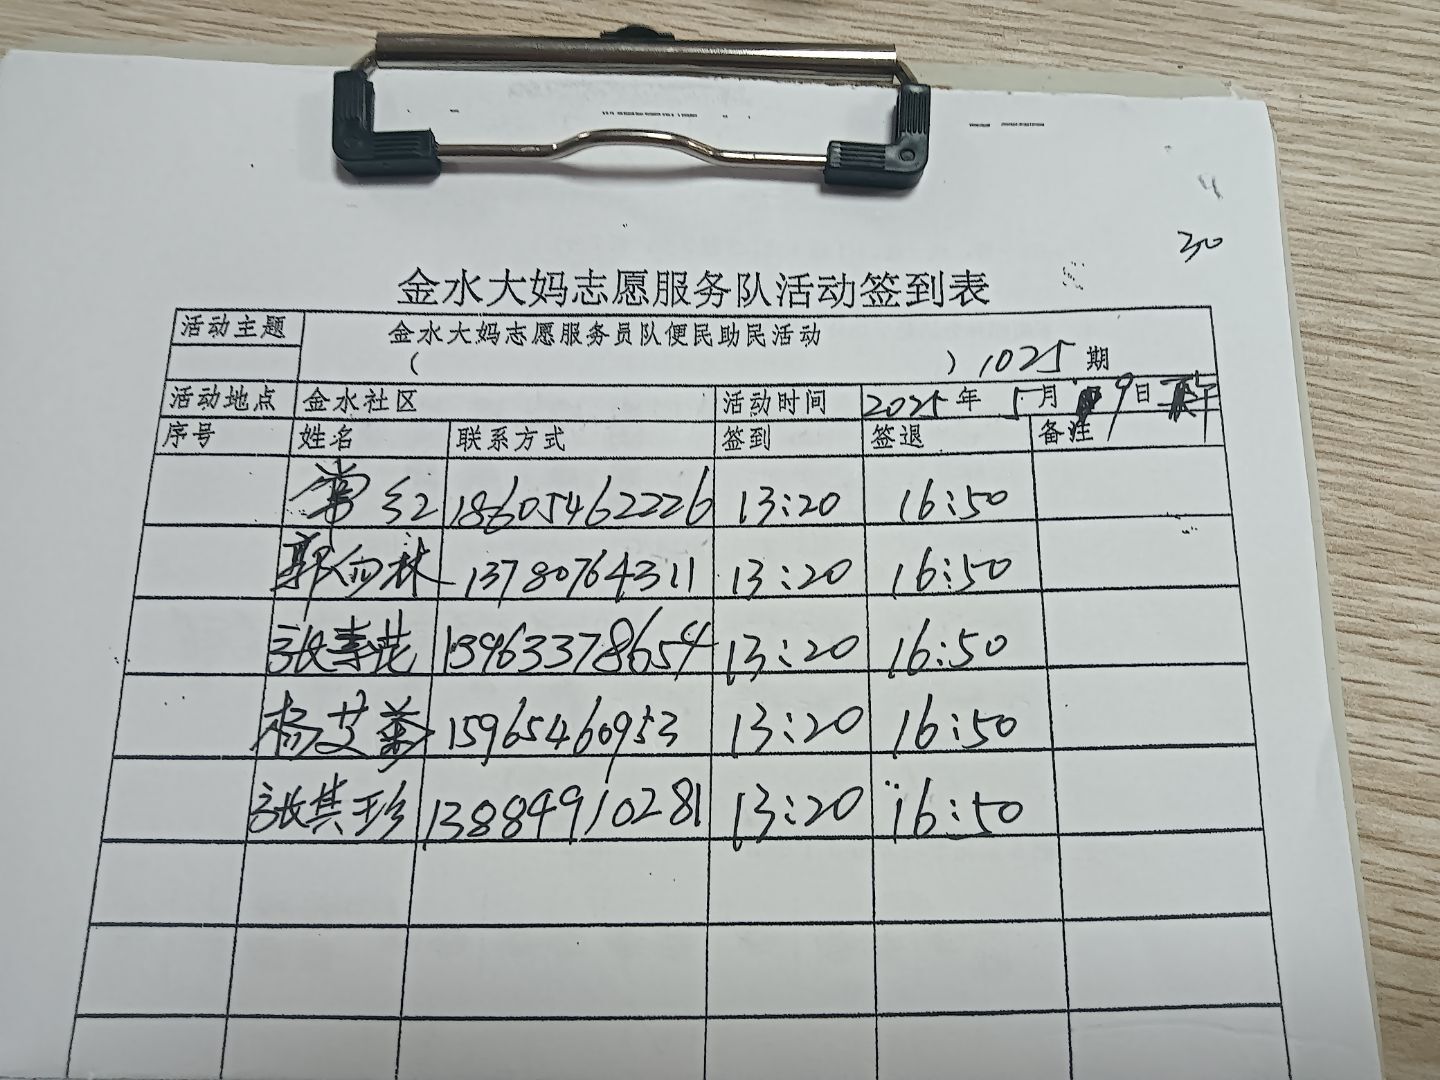 30
金水大妈志愿服务队活动签到表
活动主题 金水大妈志愿服务员队便民助民活动
( ) 1025 期
活动地点 金水社区 活动时间 2025年 5月 9日
序号 姓名 联系方式 签到 签退 备注
常红 18605462226 13:20 16:50
郭向林 13780764311 13:20 16:50
张素花 13963378654 13:20 16:50
杨艾 15965460953 13:20 16:50
张其珍 13884910281 13:20 16:50